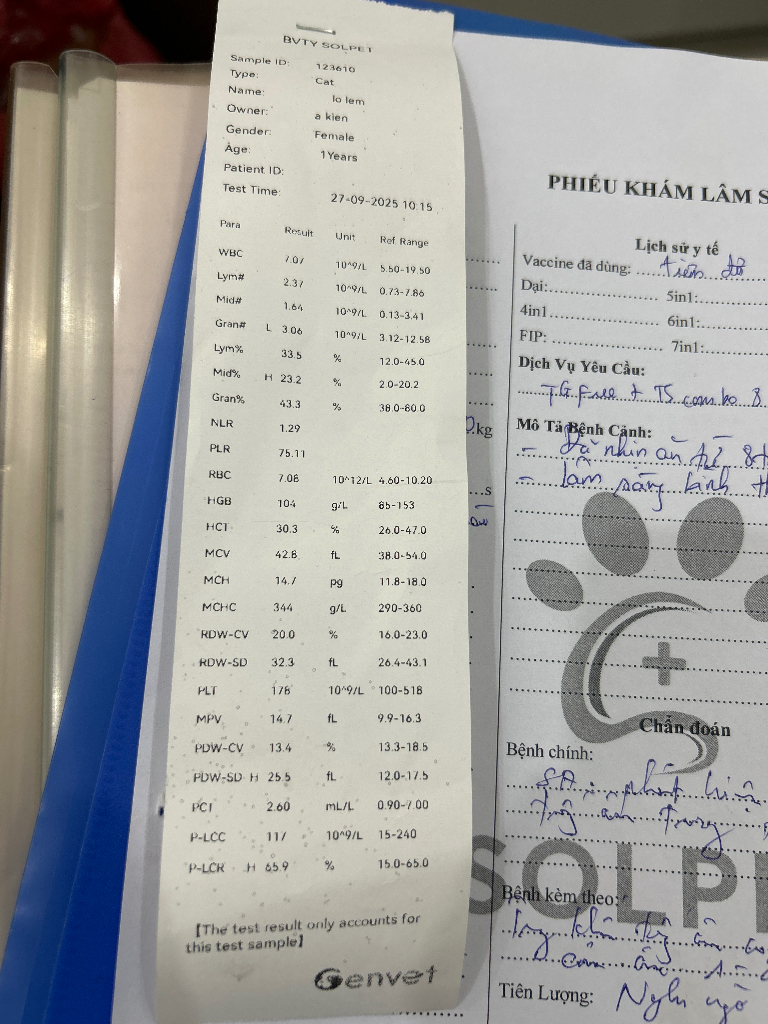 BVTY SOLPET
Sample ID: 123610
Type: Cat
Name: lo lem
Owner: a kien
Gender: Female
Age: 1Years
Patient ID:
Test Time: 27-09-2025 10:15
Para Result Unit Ref. Range
WBC 7.07 10^9/L 5.50-19.50
Lym# 2.37 10^9/L 0.73-7.86
Mid# 1.64 10^9/L 0.13-3.41
Gran# L 3.06 10^9/L 3.12-12.58
Lym% 33.5 % 12.0-45.0
Mid% H 23.2 % 2.0-20.2
Gran% 43.3 % 38.0-80.0
NLR 1.29
PLR 75.11
RBC 7.08 10^12/L 4.60-10.20
HGB 104 g/L 85-153
HCT 30.3 % 26.0-47.0
MCV 42.8 fL 38.0-54.0
MCH 14.7 pg 11.8-18.0
MCHC 344 g/L 290-360
RDW-CV 20.0 % 16.0-23.0
RDW-SD 32.3 fL 26.4-43.1
PLT 178 10^9/L 100-518
MPV 14.7 fL 9.9-16.3
PDW-CV 13.4 % 13.3-18.5
PDW-SD H 25.5 fL 12.0-17.5
PCT 2.60 mL/L 0.90-7.00
P-LCC 117 10^9/L 15-240
P-LCR H 65.9 % 15.0-65.0
[The test result only accounts for
this test sample]
Genvet
PHIẾU KHÁM LÂM S
Lịch sử y tế
Vaccine đã dùng:
Dại: 5in1:
4in1 6in1:
FIP: 7in1:
Dịch Vụ Yêu Cầu:
TG free + TS combo 8
kg
Mô Tả Bệnh Cảnh:
- Đã nhịn ăn từ 8h
- lâm sàng bình th
s
Chẩn đoán
Bệnh chính:
SA phát hiện
SOLPE
Bệnh kèm theo:
Tiên Lượng: Nghi ngờ